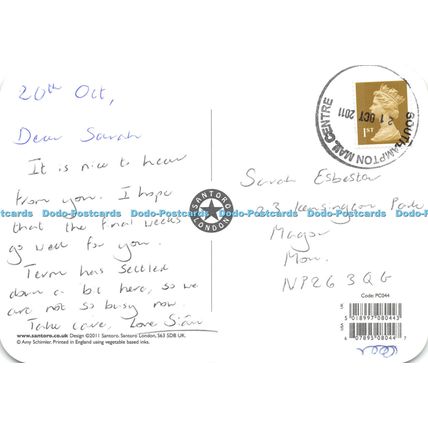 20th Oct,
Dear Sarah
It is nice to hear
from you. I hope
that the final weeks
go well for you.
Term has settled
down a bit here, so we
are not so busy now.
Take care, Love Siân
www.santoro.co.uk Design ©2011 Santoro. Santoro London, S63 5DB UK.
© Amy Schimler. Printed in England using vegetable based inks.
SANTORO
LONDON
1ST
SOUTHAMPTON MAIL CENTRE
21 OCT 2011
Sarah Esbester
23 Kensington Park
Magor
Mon.
NP26 3QG
Code: PC044
UK
5 018997 080443
USA
6 07893 08044 7
Postcards Dodo-Postcards Dodo-Postcards Dodo-Postcards Dodo-Postcards Dodo-